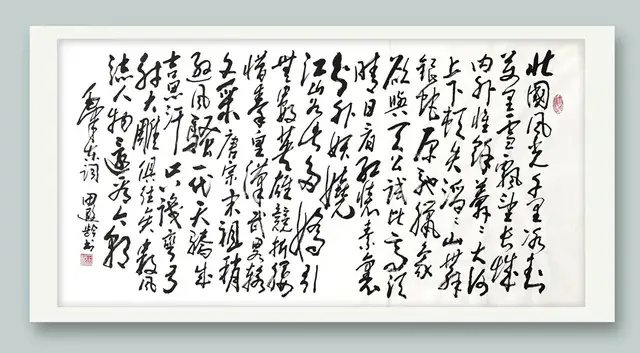 北國風光千里冰封
萬里雪飄望長城
內外惟餘莽〻大河
上下頓失滔〻山舞
銀蛇原馳臘象
欲與天公試比高須
晴日看紅裝素裹
分外妖嬈
江山如此多嬌引
無數英雄競折腰
惜秦皇漢武畧輸
文采唐宗宋祖稍
遜風騷一代天驕成
吉思汗只識彎弓
射大雕俱往矣數風
流人物還看今朝
毛澤東詞 田 齡书